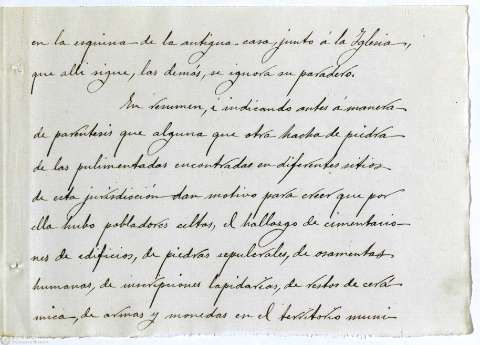 en la esquina de la antigua casa, junto á la Iglesia,
que alli sigue, las demas, se ignora su paradero.
En resumen, é indicando antes á manera
de parentesis que alguna que otra hacha de piedra
de las pulimentadas encontradas en diferentes sitios
de esta jurisdicción dan motivo para creer que por
ella hubo pobladores celtas, el hallazgo de cimentacio
nes de edificios, de piedras sepulcrales, de osamentas
humanas, de inscripciones lapidarias, de restos de cerá
mica, de armas y monedas en el territorio muni